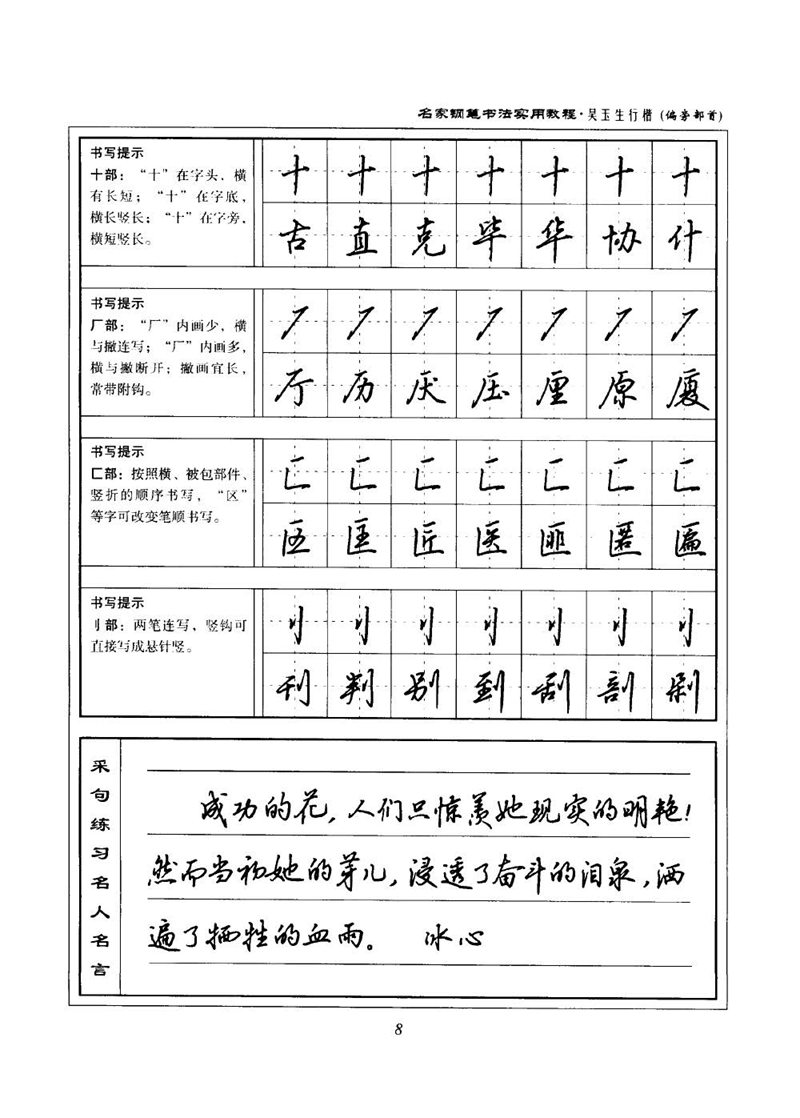 名家钢笔书法实用教程·吴玉生行楷(偏旁部首)
书写提示
十部：“十”在字头，横
有长短；“十”在字底，
横长竖长；“十”在字旁，
横短竖长。
十 十 十 十 十 十 十
古 直 克 毕 华 协 什
书写提示
厂部：“厂”内画少，横
与撇连写；“厂”内画多，
横与撇断开；撇画宜长，
常带附钩。
厂 厂 厂 厂 厂 厂 厂
厅 历 厌 压 厘 原 厦
书写提示
匚部：按照横、被包部件、
竖折的顺序书写，“区”
等字可改变笔顺书写。
匚 匚 匚 匚 匚 匚 匚
匡 匠 医 匪 匿 匾
书写提示
刂部：两笔连写，竖钩可
直接写成悬针竖。
刂 刂 刂 刂 刂 刂 刂
刊 判 别 到 刮 剖 剁
采句练习名人名言
成功的花，人们只惊羡她现实的明艳！
然而当初她的芽儿，浸透了奋斗的泪泉，洒
遍了牺牲的血雨。 冰心
8